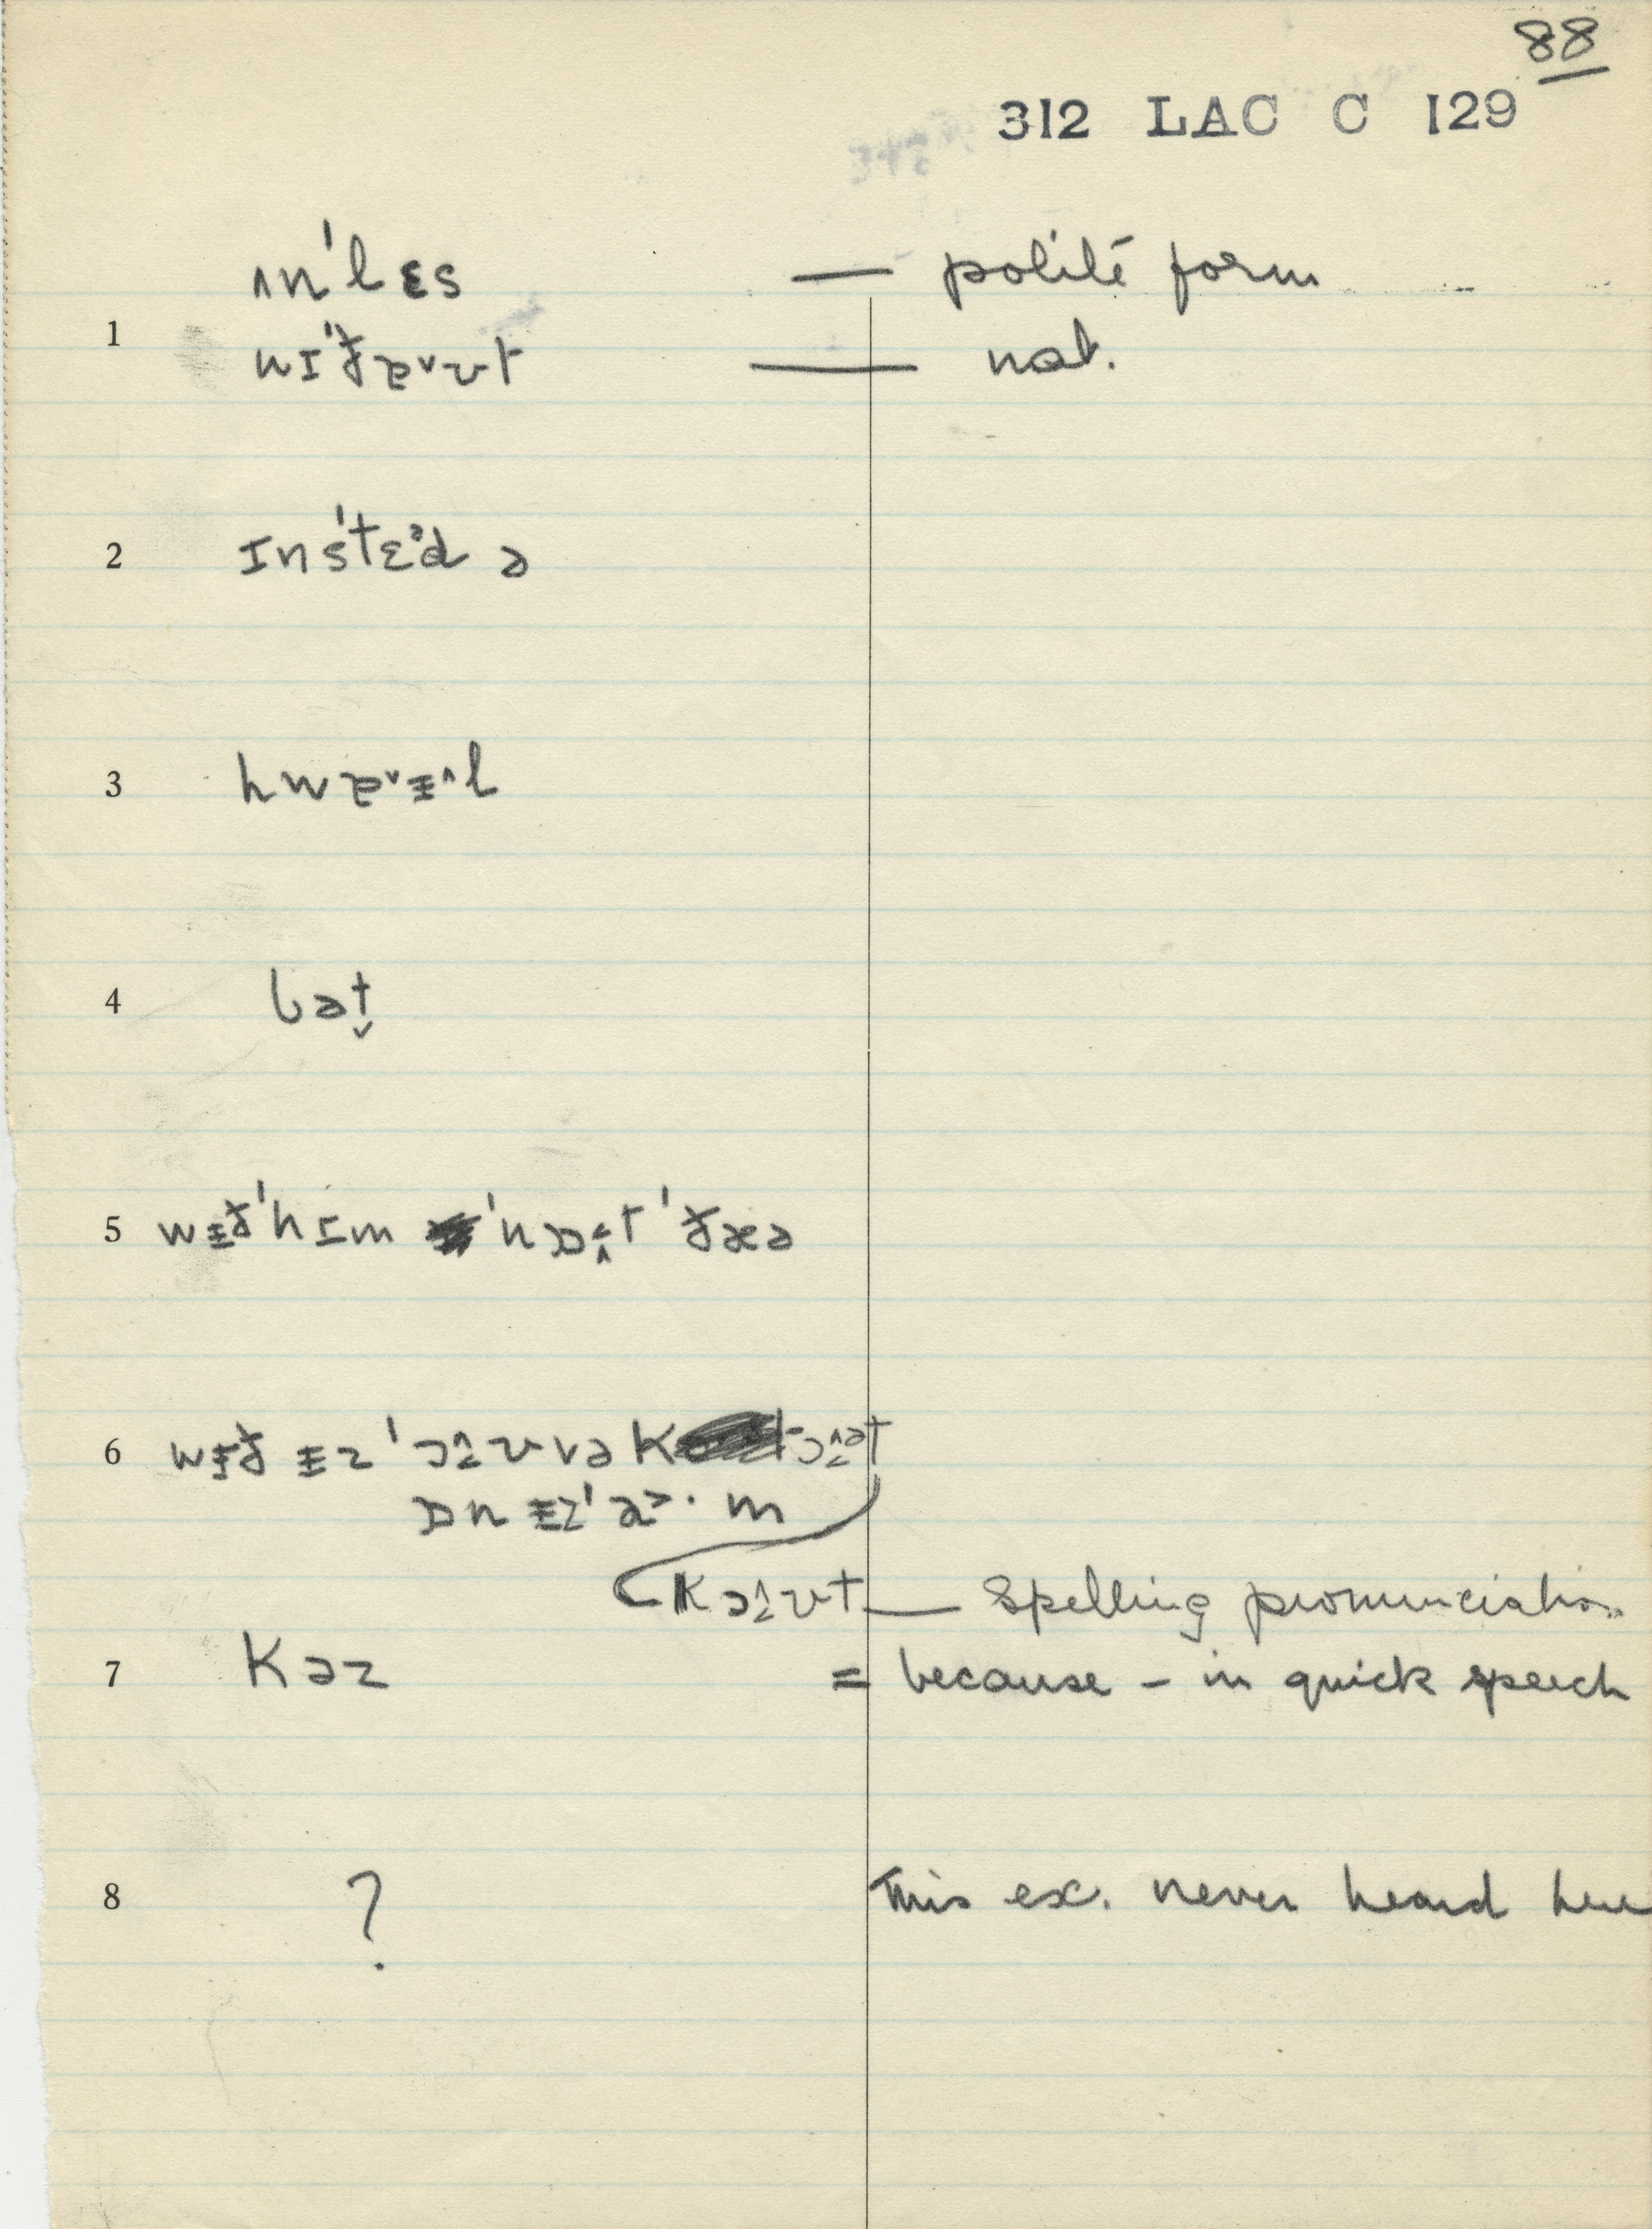 88
312 LAC C 129
ʌn'lɛs — polite form
1 wɪ'ðɐˇʊt — nat.
2 ɪn'stɛᵊd ə
3 hwɐˇᵻ^l
4 bət̬
5 wᵻð'hɪm 'nɒ t 'ðæə
6 wᵻð ᵻz 'ɔ vɚ k
ɒn ᵻz'a˃·m
k t — Spelling pronunciation
7 kəz = because - in quick speech
8 ? This ex. never heard here